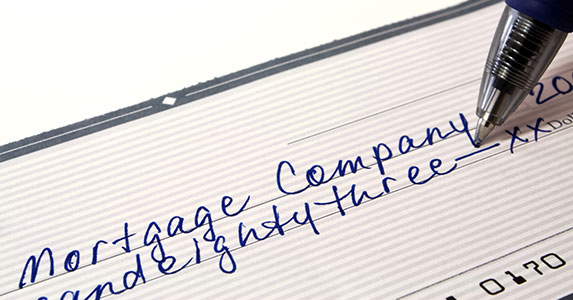 Mortgage Company 20
andeightythree—xx Doll
0170